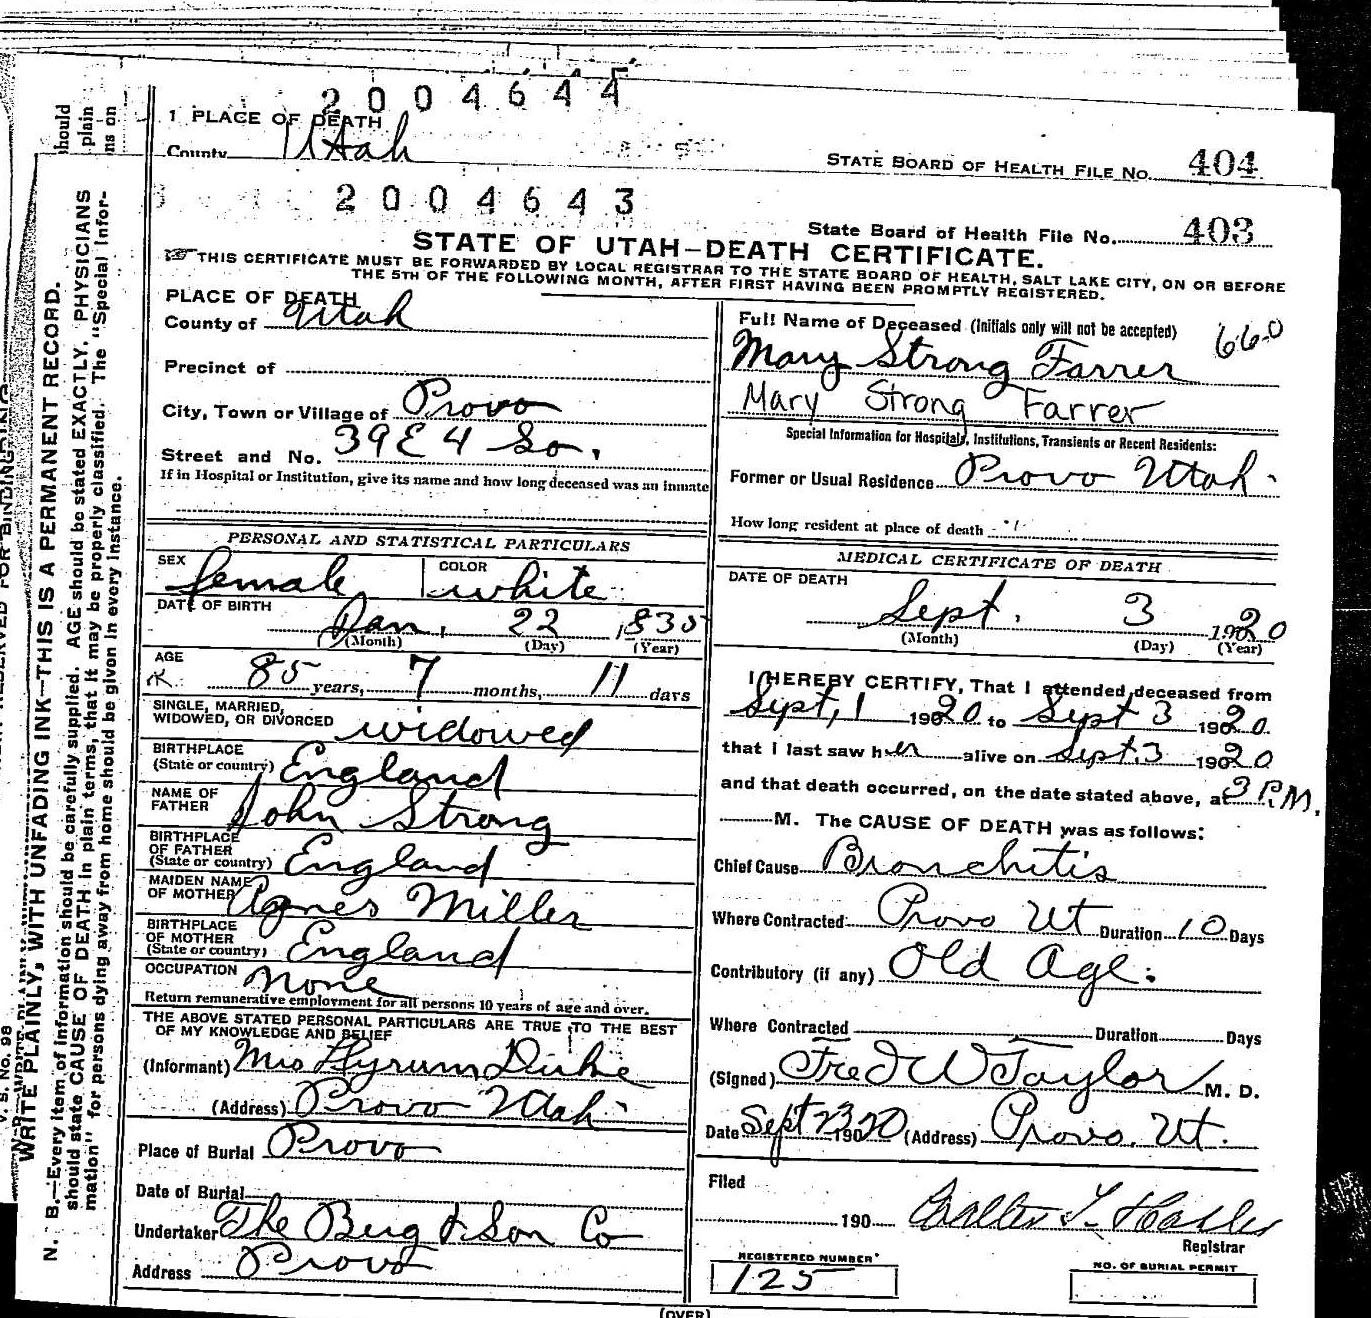 2004644
1 PLACE OF DEATH
County Utah
STATE BOARD OF HEALTH FILE No. 404
2004643
State Board of Health File No. 403
STATE OF UTAH—DEATH CERTIFICATE.
THIS CERTIFICATE MUST BE FORWARDED BY LOCAL REGISTRAR TO THE STATE BOARD OF HEALTH, SALT LAKE CITY, ON OR BEFORE
THE 5TH OF THE FOLLOWING MONTH, AFTER FIRST HAVING BEEN PROMPTLY REGISTERED.
PLACE OF DEATH
County of Utah
Precinct of
City, Town or Village of Provo
Street and No. 39 E 4 So.
If in Hospital or Institution, give its name and how long deceased was an inmate
PERSONAL AND STATISTICAL PARTICULARS
SEX female COLOR white
DATE OF BIRTH Jan. 22 1835
(Month) (Day) (Year)
AGE 85 years, 7 months, 11 days
SINGLE, MARRIED,
WIDOWED, OR DIVORCED widowed
BIRTHPLACE
(State or country) England
NAME OF
FATHER John Strong
BIRTHPLACE
OF FATHER
(State or country) England
MAIDEN NAME
OF MOTHER Agnes Miller
BIRTHPLACE
OF MOTHER
(State or country) England
OCCUPATION None
Return remunerative employment for all persons 10 years of age and over.
THE ABOVE STATED PERSONAL PARTICULARS ARE TRUE TO THE BEST
OF MY KNOWLEDGE AND BELIEF
(Informant) Mrs Hyrum
(Address) Provo Utah
Place of Burial Provo
Date of Burial
Undertaker The Berg & Son Co
Address Provo
Full Name of Deceased (Initials only will not be accepted) 660
Mary Strong Farrer
Mary Strong Farrer
Special Information for Hospitals, Institutions, Transients or Recent Residents:
Former or Usual Residence Provo Utah.
How long resident at place of death
MEDICAL CERTIFICATE OF DEATH
DATE OF DEATH
Sept. 3 1920
(Month) (Day) (Year)
I HEREBY CERTIFY, That I attended deceased from
Sept, 1 1920 to Sept 3 1920.
that I last saw her alive on Sept. 3 1920
and that death occurred, on the date stated above, at 3 P.M.
M. The CAUSE OF DEATH was as follows:
Chief Cause Bronchitis
Where Contracted Provo Ut Duration 10 Days
Contributory (if any) Old Age.
Where Contracted Duration Days
(Signed) Fred W Taylor M. D.
Date Sept 1920 (Address) Provo. Ut.
Filed
190 Registrar
REGISTERED NUMBER
125
NO. OF BURIAL PERMIT
(OVER)
V. S. No. 98
WRITE PLAINLY, WITH UNFADING INK—THIS IS A PERMANENT RECORD.
N. B.—Every item of information should be carefully supplied. AGE should be stated EXACTLY. PHYSICIANS
should state CAUSE OF DEATH in plain terms, that it may be properly classified. The "Special Infor-
mation" for persons dying away from home should be given in every instance.
should
plain
ns on